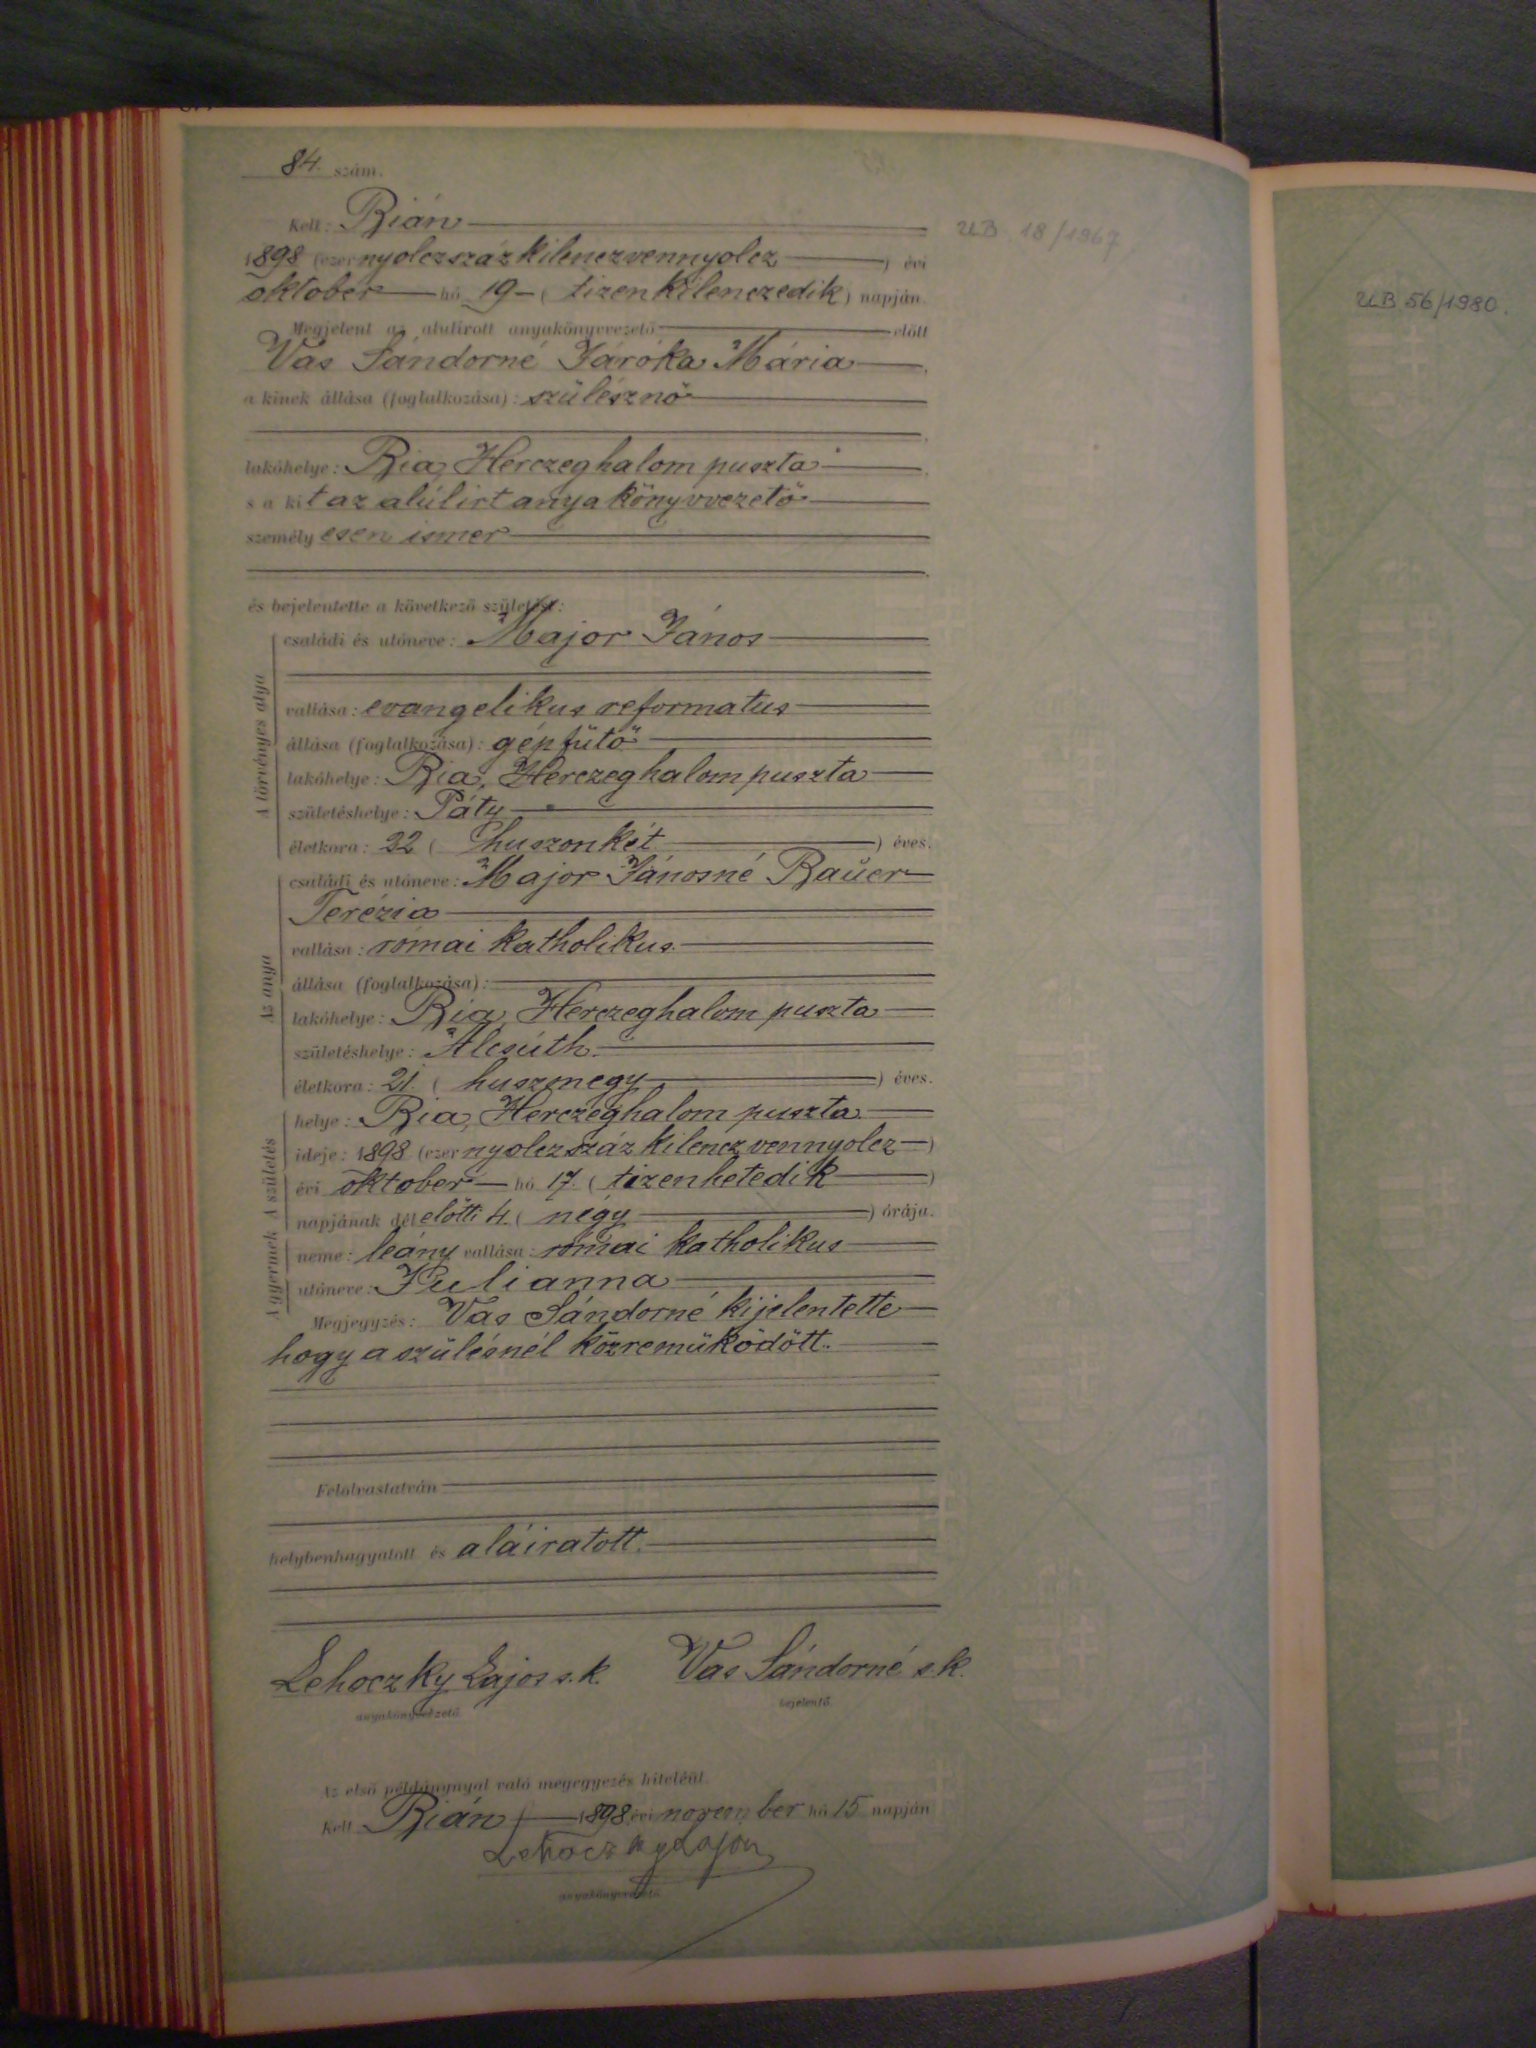 84. szám.
Kelt: Bián
1898 (ezernyolczszázkilenczvennyolcz) évi
október hó 19 (tizenkilenczedik) napján
Megjelent az alulírott anyakönyvvezető előtt
Vas Sándorné Járóka Mária
a kinek állása (foglalkozása): szülésznő
lakóhelye: Bia, Herczeghalom puszta
s a kit az alúlirt anyakönyvvezető
személyesen ismer
és bejelentette a következő születést:
A törvényes atya
családi és utóneve: Major János
vallása: evangelikus reformatus
állása (foglalkozása): gépfűtő
lakóhelye: Bia, Herczeghalom puszta
születéshelye: Páty
életkora: 22 (huszonkét) éves.
Az anya
családi és utóneve: Major Jánosné Bauer
Terézia
vallása: római katholikus
állása (foglalkozása):
lakóhelye: Bia, Herczeghalom puszta
születéshelye: Alcsúth.
életkora: 21. (huszonegy) éves.
A születés
helye: Bia, Herczeghalom puszta
ideje: 1898 (ezernyolczszázkilenczvennyolcz)
évi október hó 17. (tizenhetedik)
napjának délelőtti 4. (négy) órája.
A gyermek
neme: leány vallása: római katholikus
utóneve: Julianna
Megjegyzés: Vas Sándorné kijelentette
hogy a szülésnél közreműködött.
Felolvastatván
helybenhagyatott és aláiratott.
Lehoczky Lajos s.k. Vas Sándorné s.k.
anyakönyvvezető. bejelentő.
Az első példánynyal való megegyezés hiteléül.
Kelt Bián 1898 évi november hó 15 napján
Lehoczky Lajos
anyakönyvvezető
UB 18/1967
UB 56/1980.